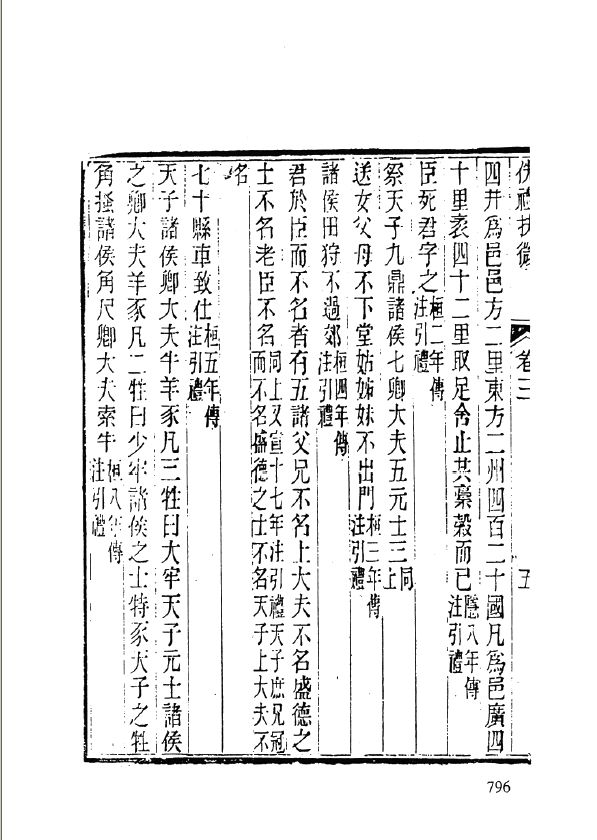 佚禮扶微 卷三 五
四井爲邑邑方二里東方二州四百二十國凡爲邑廣四
十里袤四十二里取足舍止共稾穀而已隱八年傳注引禮
臣死君字之桓二年傳注引禮
祭天子九鼎諸侯七卿大夫五元士三同上
送女父母不下堂姑姊妹不出門桓三年傳注引禮
諸侯田狩不過郊桓四年傳注引禮
君於臣而不名者有五諸父兄不名上大夫不名盛德之
士不名老臣不名同上又宣十七年注引禮天子庶兄冠而不名盛德之仕不名天子上大夫不
名
七十縣車致仕桓五年傳注引禮
天子諸侯卿大夫牛羊豕凡三牲曰大牢天子元士諸侯
之卿大夫羊豕凡二牲曰少牢諸侯之士特豕天子之牲
角握諸侯角尺卿大夫索牛桓八年傳注引禮
796